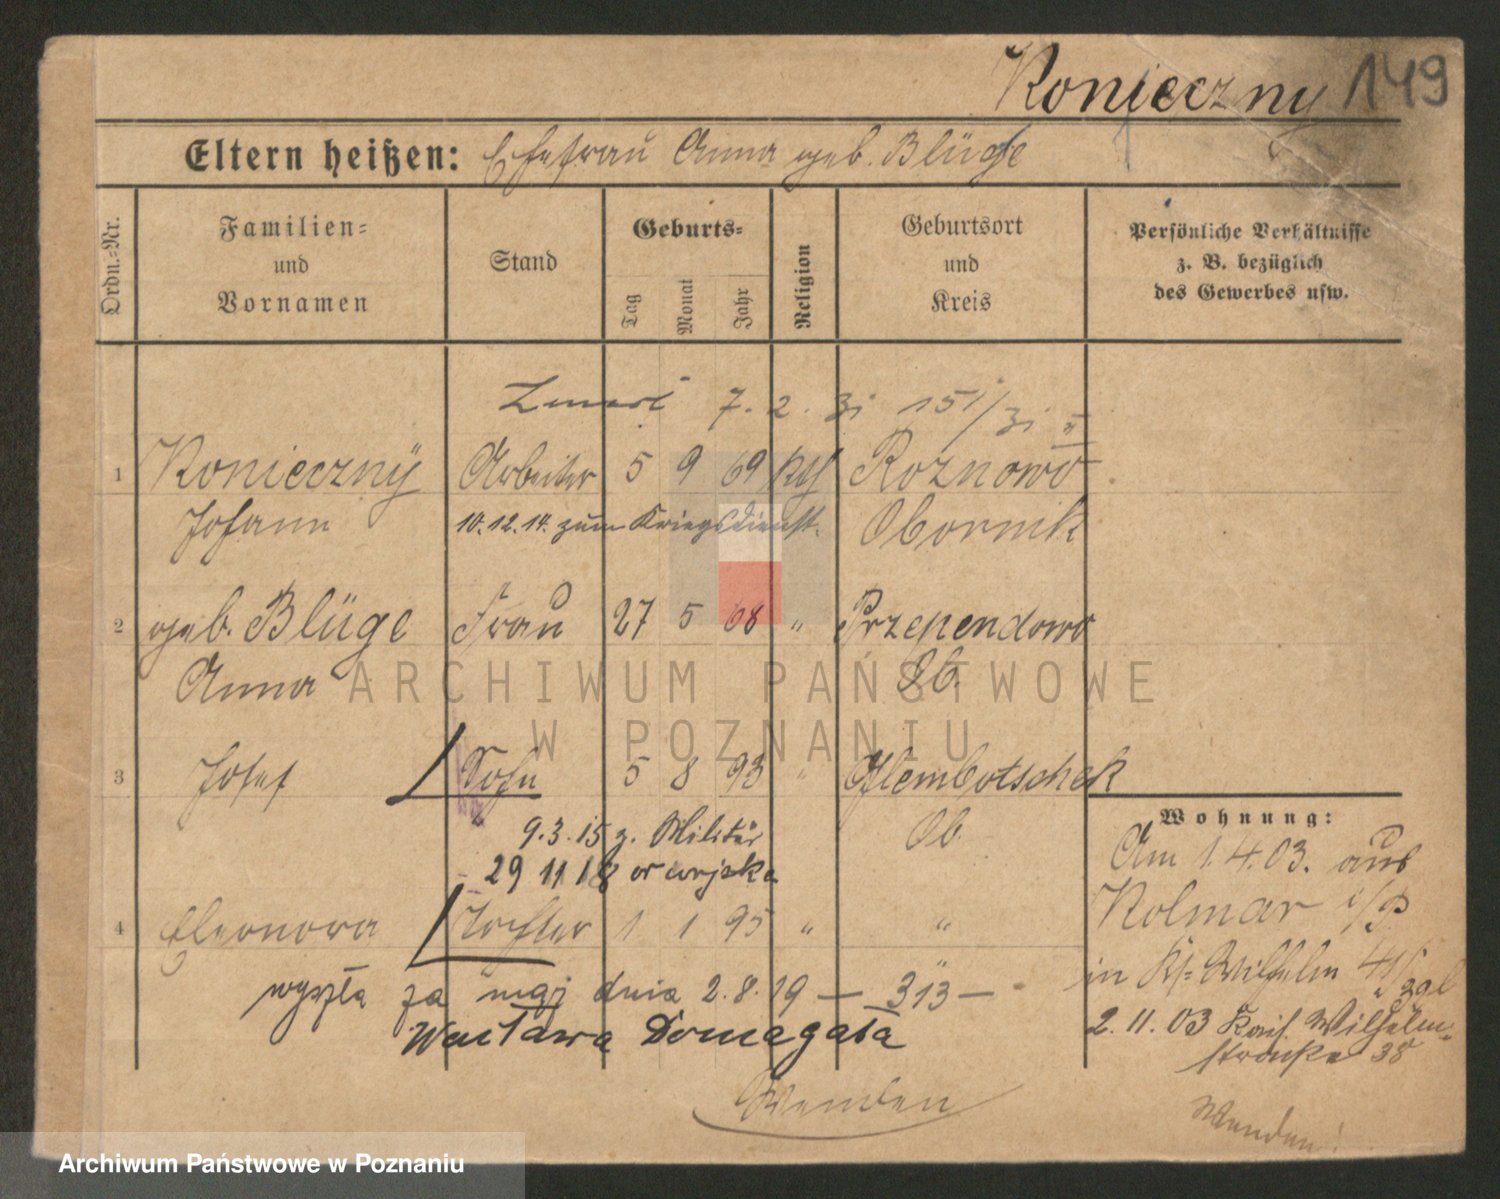 Konieczny 149
Eltern heißen: Ehefrau Anna geb. Blüge
Ordn.-Nr.
Familien-
und
Vornamen
Stand
Geburts-
Tag
Monat
Jahr
Religion
Geburtsort
und
Kreis
Persönliche Verhältnisse
z. B. bezüglich
des Gewerbes usw.
Zmarł 7. 2. 31 151/31
1 Konieczny Arbeiter 5 9 69 kth Roznowo
Johann 10.12.14. zum Kriegsdienst. Obornik
2 geb. Blüge Frau 27 5 68 " Przependowo
Anna Ob.
3 Josef Sohn 5 8 93 " Glembotschek
9.3.15 z. Militär Ob.
29 11 18 z wojska
4 Eleonora Tochter 1 1 95 " "
wyszła za mąż dnia 2.8.19 — 313 —
Wacława Domagała
Wenden
Wohnung:
Am 1.4.03. aus
Kolmar i/P
in Ks. Wilhelm
2.11.03 Kais Wilhelm-
strasse 38
Wenden!
ARCHIWUM PAŃSTWOWE
W POZNANIU
Archiwum Państwowe w Poznaniu